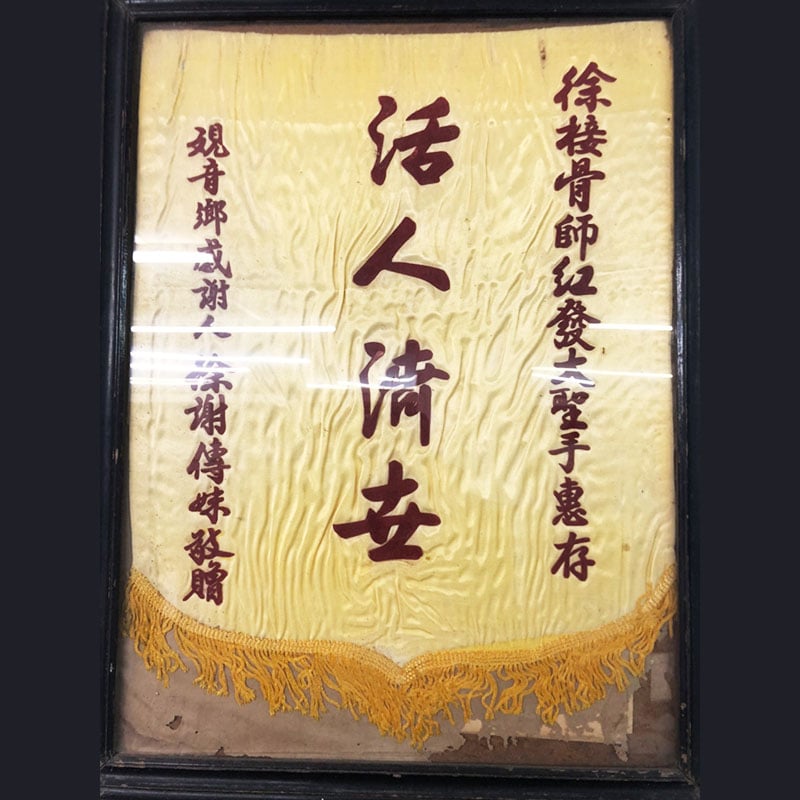 徐接骨師紅發大聖手惠存
活人濟世
觀音鄉感謝人徐謝傳妹敬贈